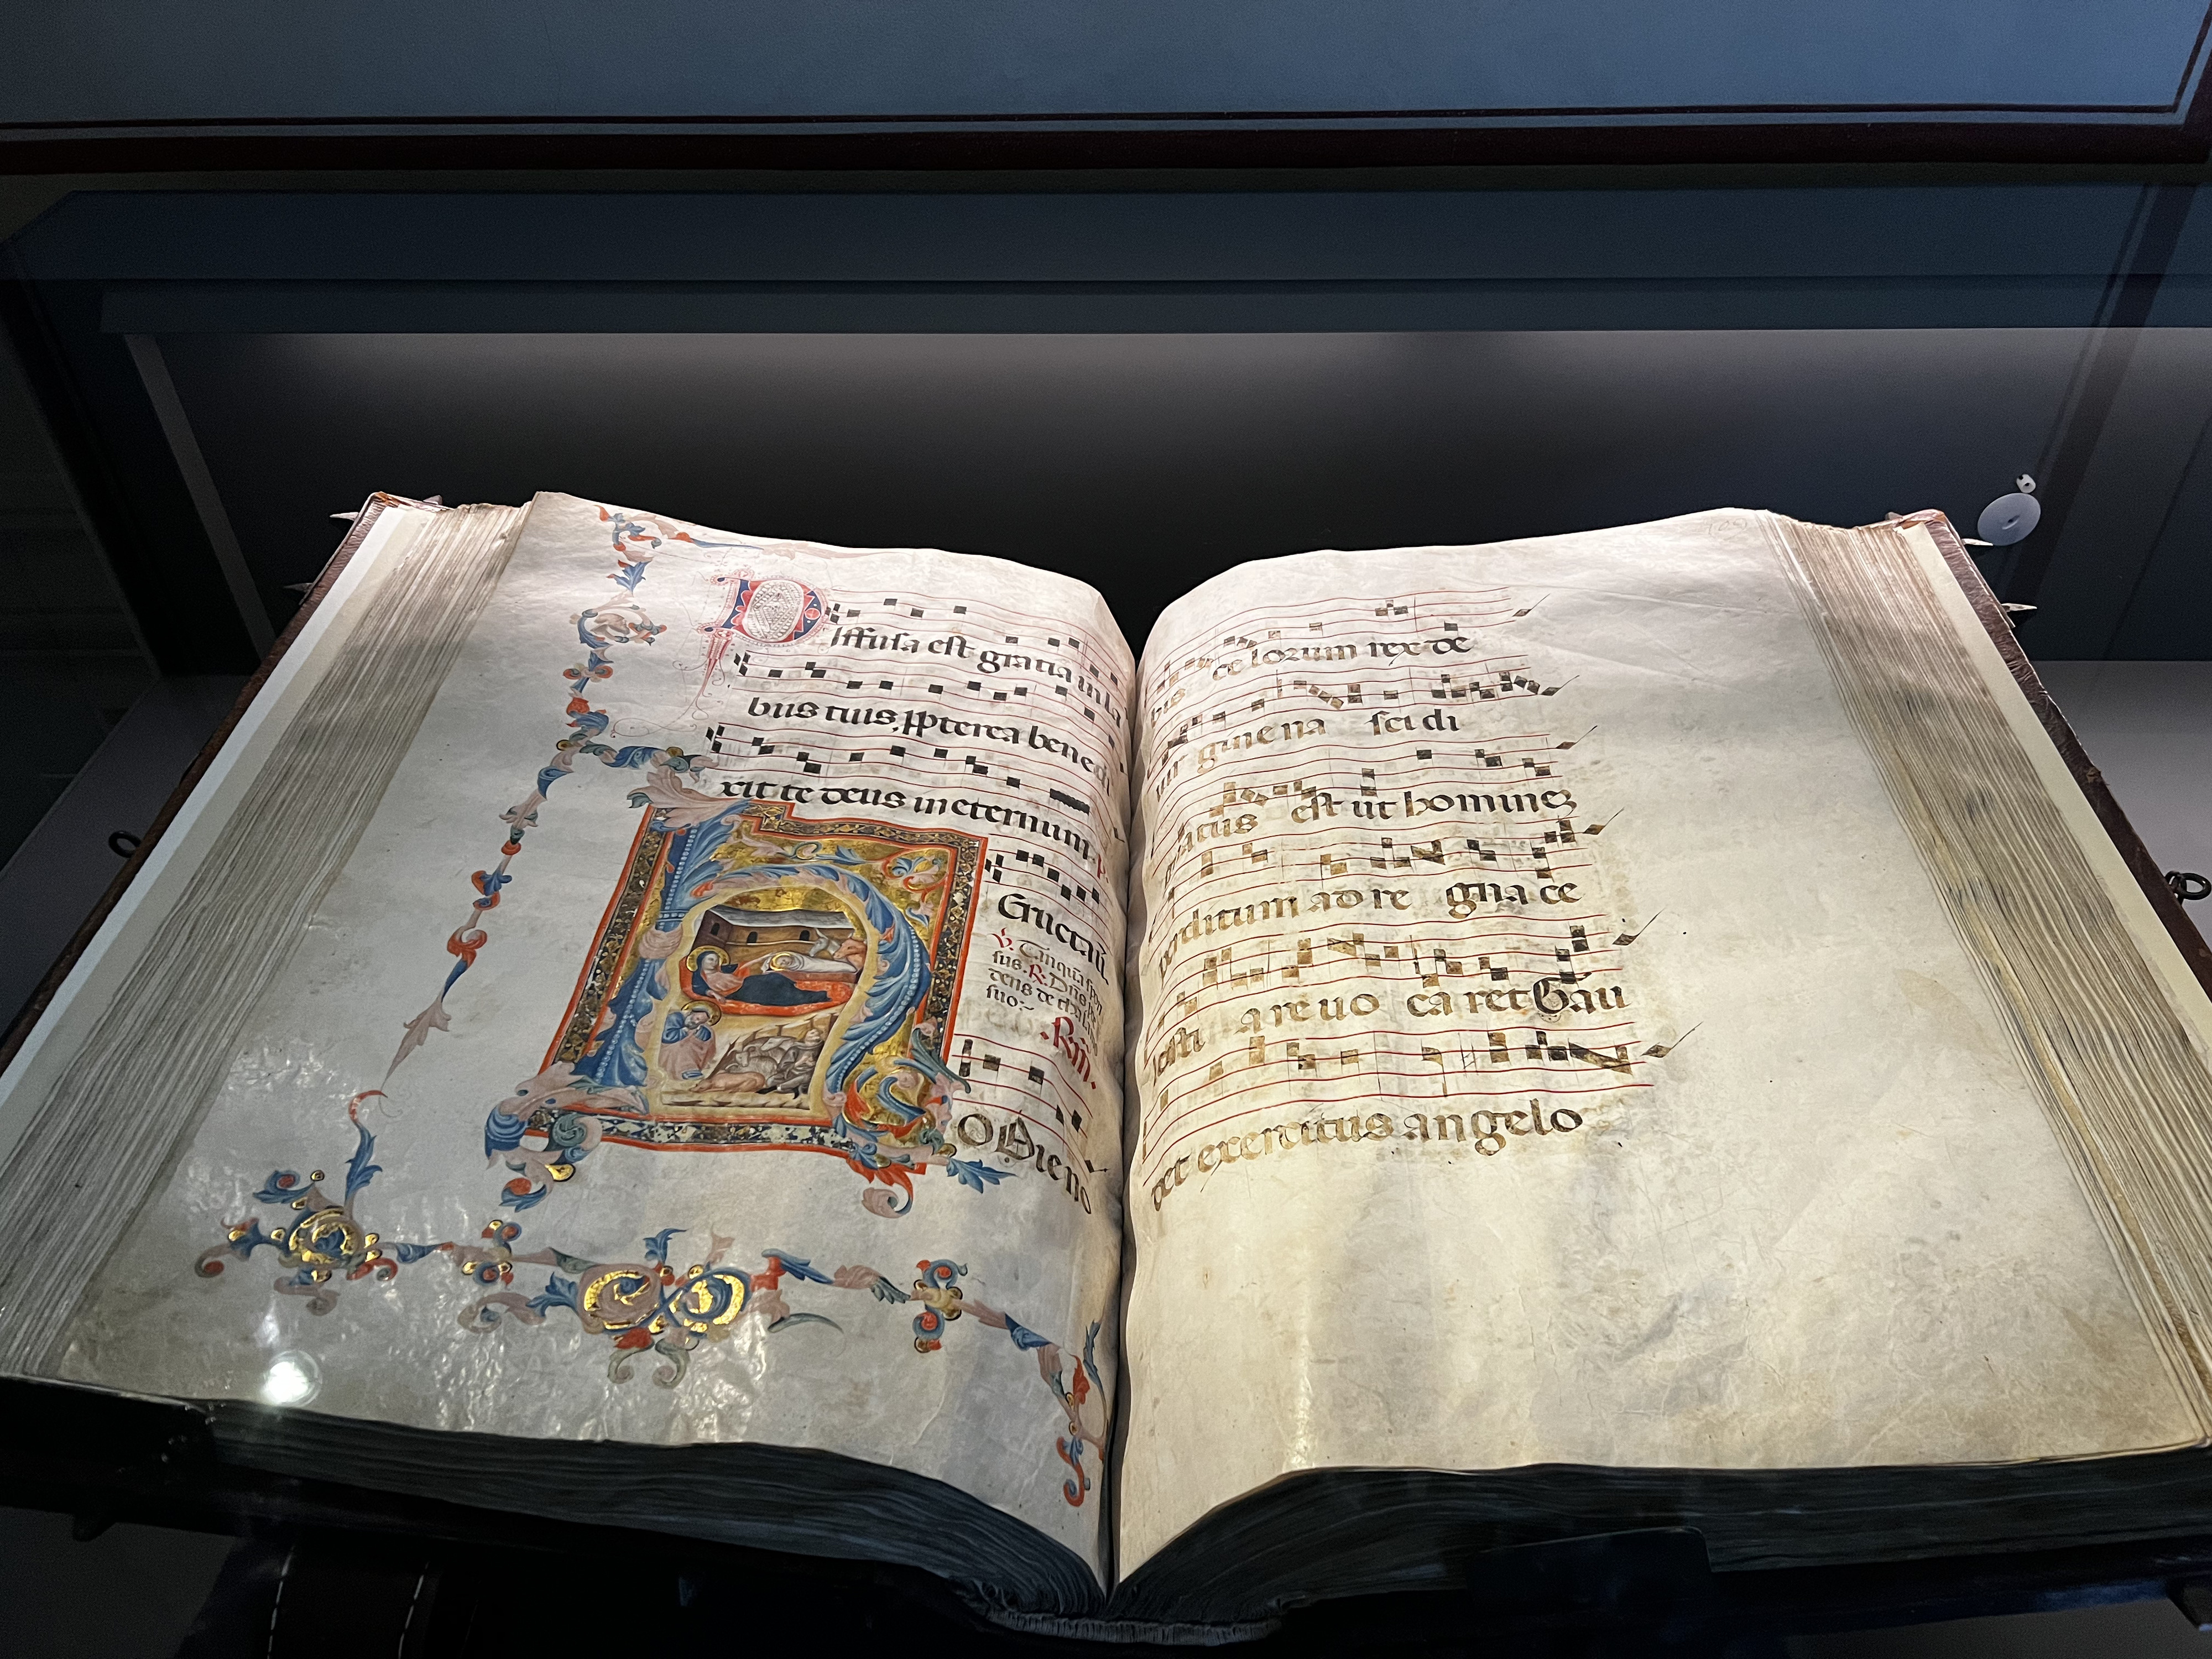 Diffusa est gratia in la
biis tuis, ppterea bene di
xit te deus in eternum.
Eructa
V. Tanqua spon
sus. R. Dns p
dens de thala
suo.
.Rm.
HODie no
bis celorum rex de
vir gine na sci di
gnatus est ut homine
perditum ad re gna ce
lesti a re uo ca ret Gau
det exercitus angelo